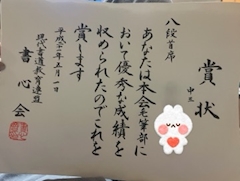 賞状
中三
八段首席
あなたは本会毛筆部に
おいて優秀な成績を
収められたのでこれを
賞します
平成二十一年五月一日
現代書道教育連盟
書心会